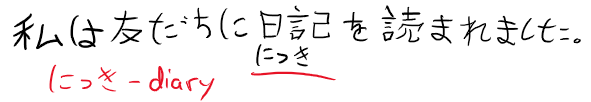 私は友だちに日記を読まれました。
にっき
にっき - diary